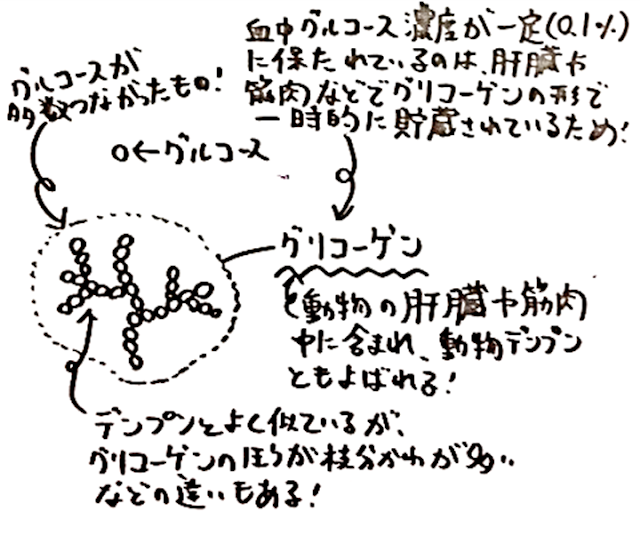 血中グルコース濃度が一定(0.1%)
に保たれているのは、肝臓や
筋肉などでグリコーゲンの形で
一時的に貯蔵されているため!
グルコースが
多数つながったもの!
○←グルコース
グリコーゲン
動物の肝臓や筋肉
中に含まれ、動物デンプン
ともよばれる!
デンプンとよく似ているが、
グリコーゲンのほうが枝分かれが多い
などの違いもある!